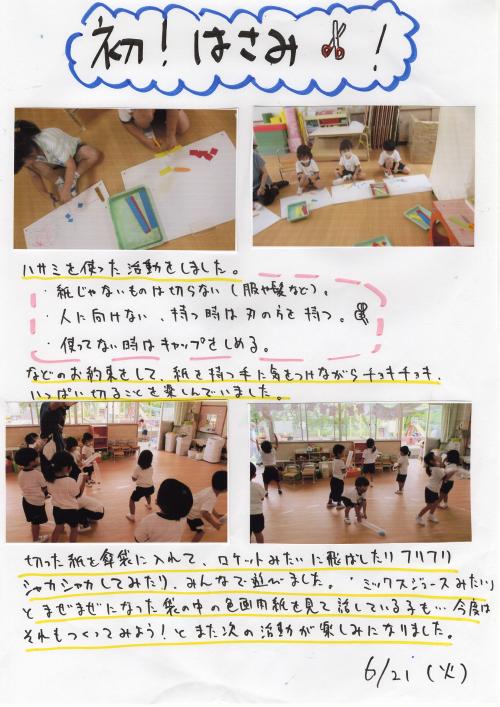 初!はさみ!
ハサミを使った活動をしました。
・紙じゃないものは切らない(服や髪など)。
・人に向けない、持つ時は刃の方を持つ。
・使ってない時はキャップをしめる。
などのお約束をして、紙を持つ手に気をつけながらチョキチョキ、
いっぱい切ることを楽しんでいました。
切った紙を傘袋に入れて、ロケットみたいに飛ばしたりフリフリ
シャカシャカしてみたり、みんなで遊びました。"ミックスジュースみたい!"
とまぜまぜになった袋の中の色画用紙を見て話している子も…今度は
それもつくってみよう!とまた次の活動が楽しみになりました。
6/21(火)